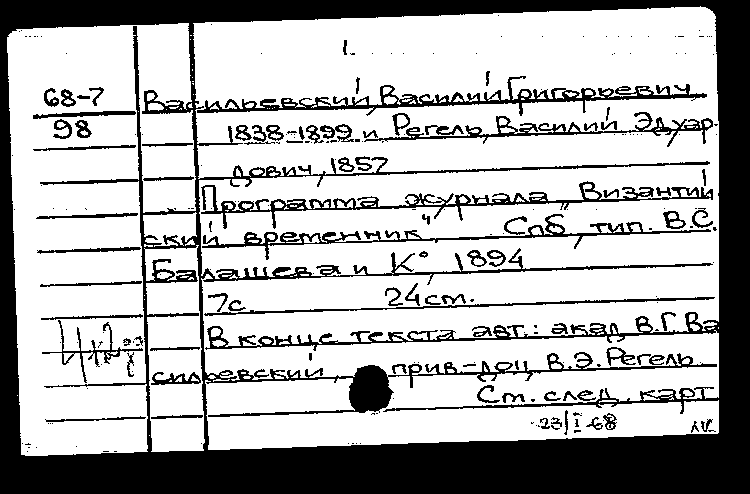 1.
68-7 Васильевский, Василий Григорьевич,
98 1838-1899 и Регель, Василий Эдуар-
дович, 1857
Программа журнала „Византий
ский временник", Спб, тип. В.С.
Балашева и К°, 1894
7с. 24см.
В конце текста авт.: акад. В.Г. Ва
сильевский, прив-доц. В.Э. Регель
См. след. карт
23/I-68